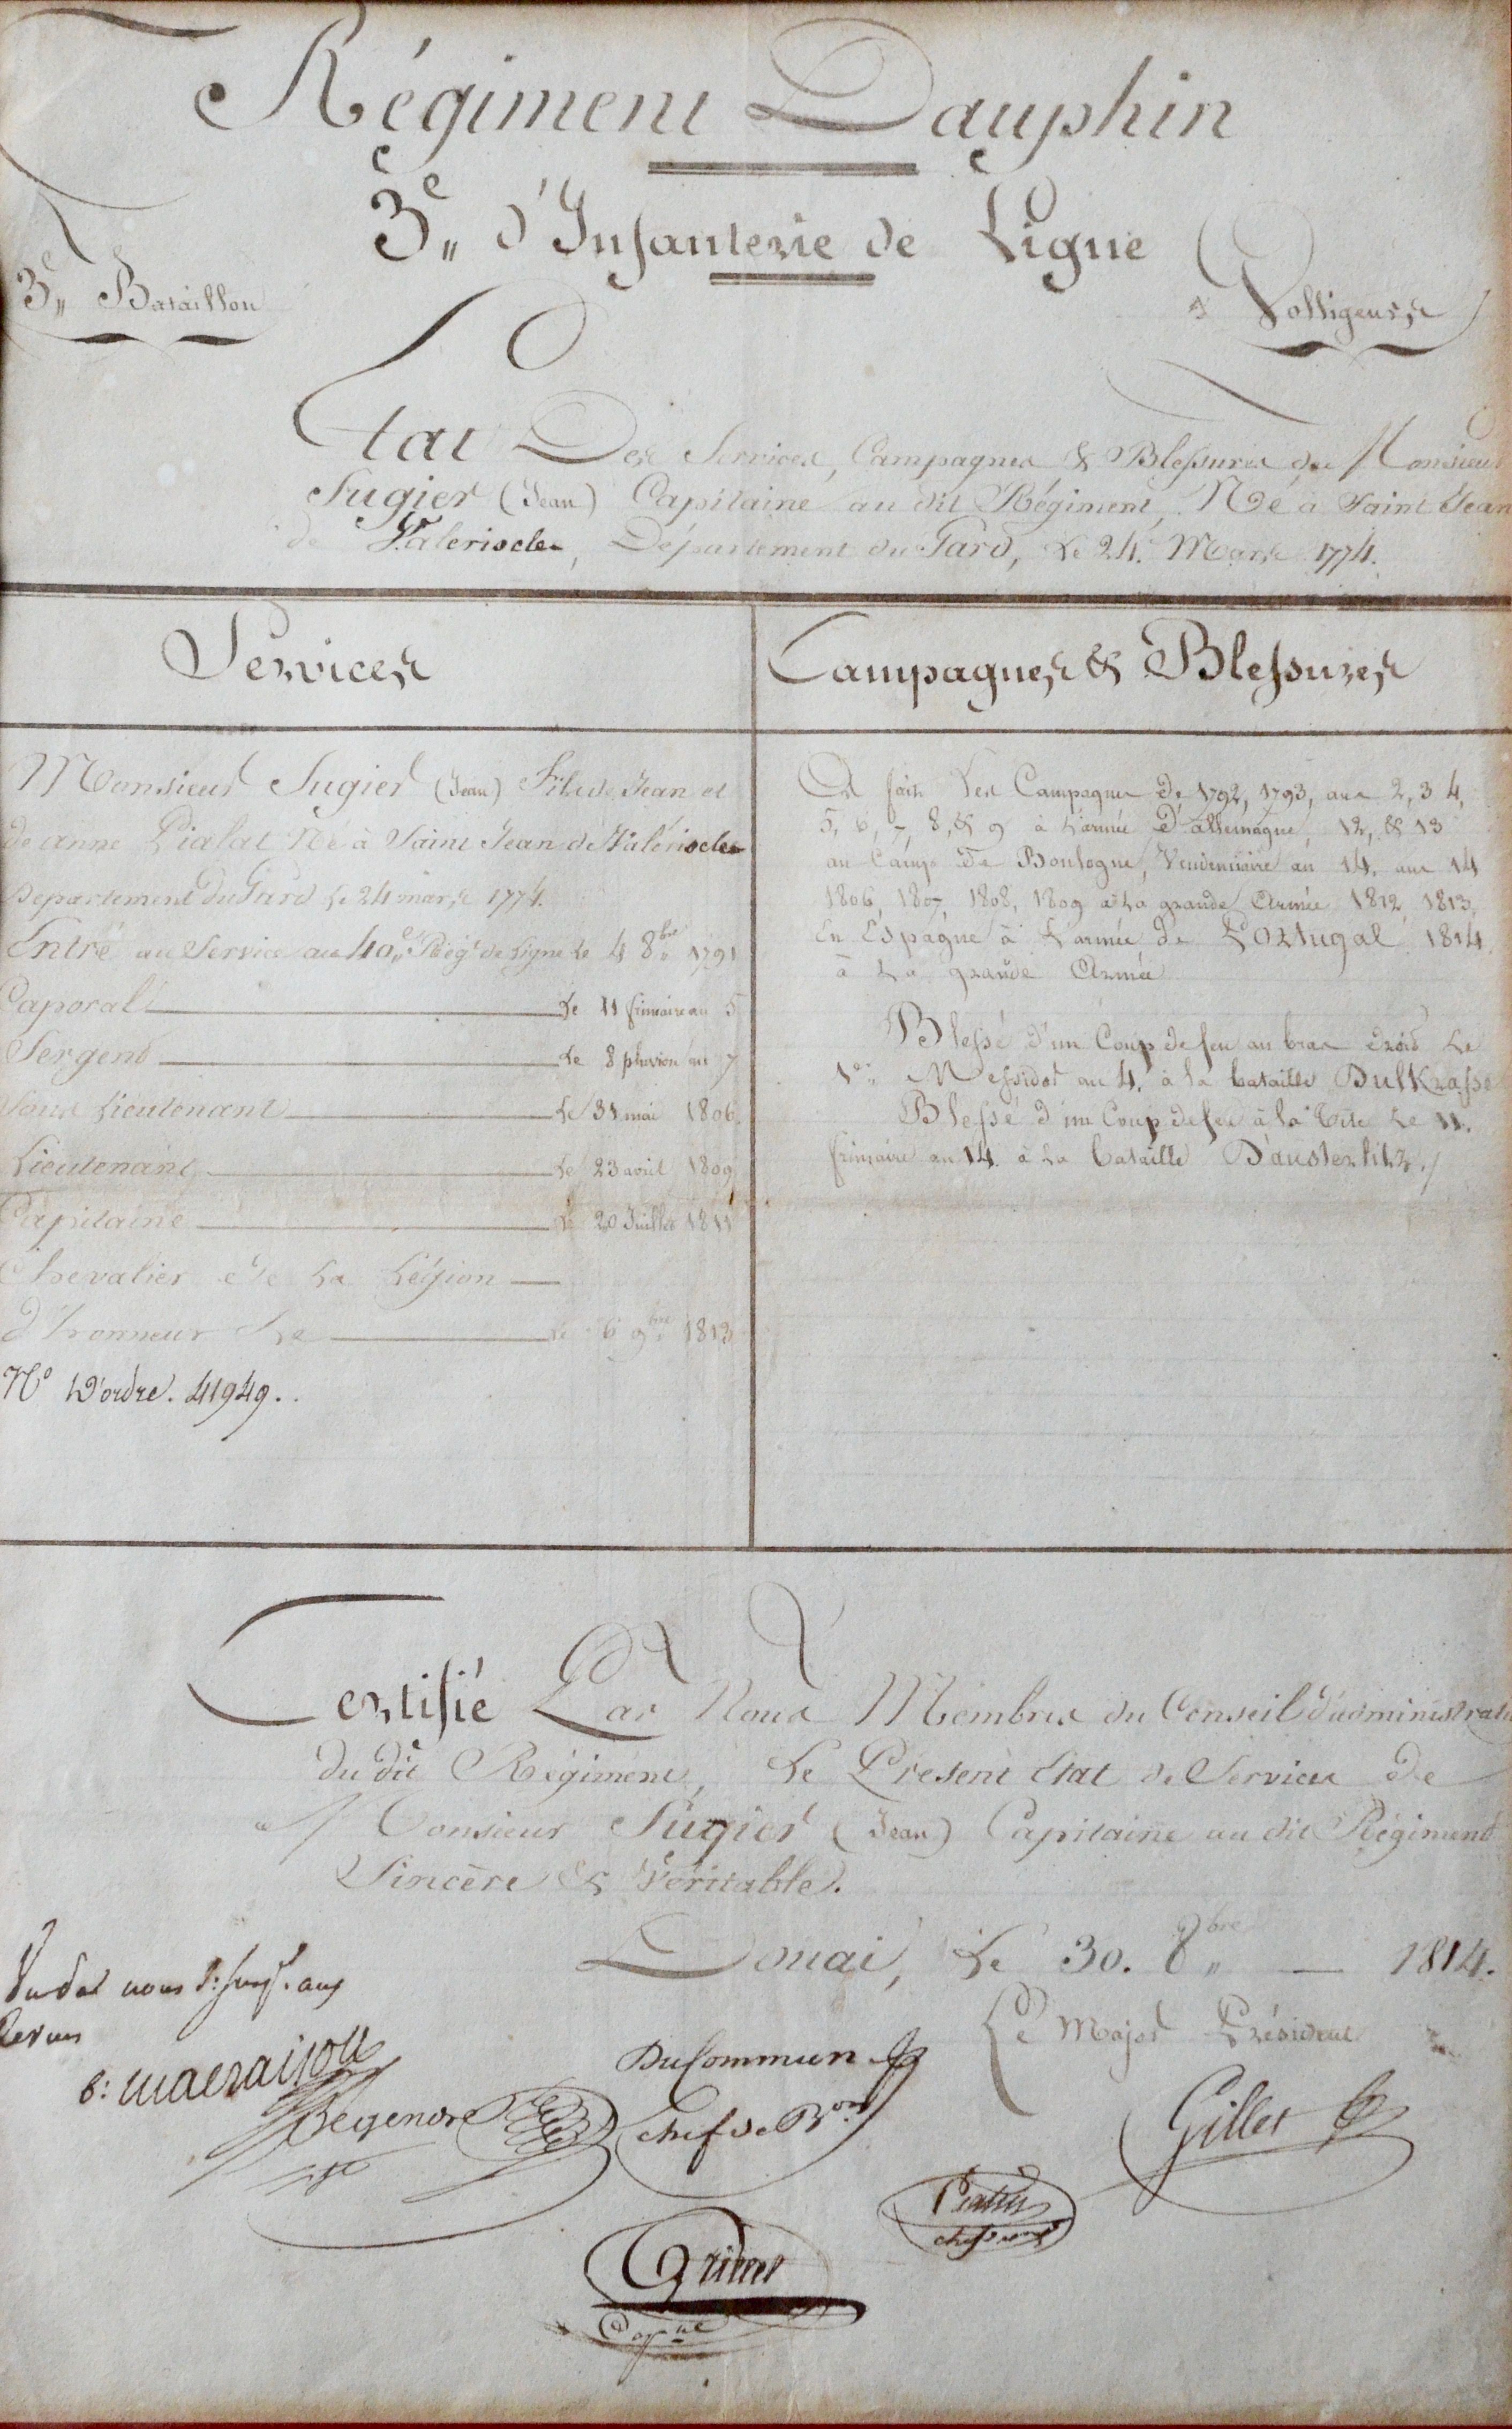 Régiment Dauphin
3e,, d'Infanterie de Ligne
3e,, Bataillon
Voltigeurs
Etat Des Services, Campagnes & Blessures de Monsieur
Sugier (Jean) Capitaine au dit Régiment, Né à Saint Jean
de Valeriscle, Département du Gard, Le 24. Mars 1774.
Services
Monsieur Sugier (Jean) Fils de Jean et
de anne Pialat Né à Saint Jean de Valériscle
Departement Du Gard le 24 mars 1774.
Entré au Service au 40e,, Régt de Ligne Le 4 8bre 1791
Caporal Le 11 frimaire an 5
Sergent Le 8 pluviose an 7
Sous Lieutenant Le 31 mai 1806.
Lieutenant Le 23 avril 1809
Capitaine Le 20 Juillet 1811
Chevalier de La Légion
d'honneur Le Le 6 9bre 1813
No D'ordre. 41949..
Campagnes & Blessures
A fait Les Campagnes De 1792, 1793, ans 2, 3 4,
5, 6, 7, 8, & 9 à L'armée D'allemagne, 12, & 13
au Camp De Boulogne, Vendemiaire an 14. ans 14
1806, 1807, 1808, 1809 à La grande Armée 1812, 1813,
En Espagne à L'armée de Portugal 1814.
à La grande Armée
Blessé d'un Coup de feu au bras droit Le
1er,, Messidor an 4. à la bataille Dulkrasse
Blessé d'un Coup de feu à la Tete Le 11.
frimaire an 14. à La bataille D'austerlitz./
Certifié Par Nous Membres du Conseil d'administrat
du dit Régiment, Le Present Etat de Services De
Monsieur Sugier (Jean) Capitaine au dit Régiment
Sincère & Véritable.
Douai, Le 30. 8bre,, — 1814.
Le Major Président
Vu par nous
DuCommun
chef de Bon
Begenore
Gillet
Capne